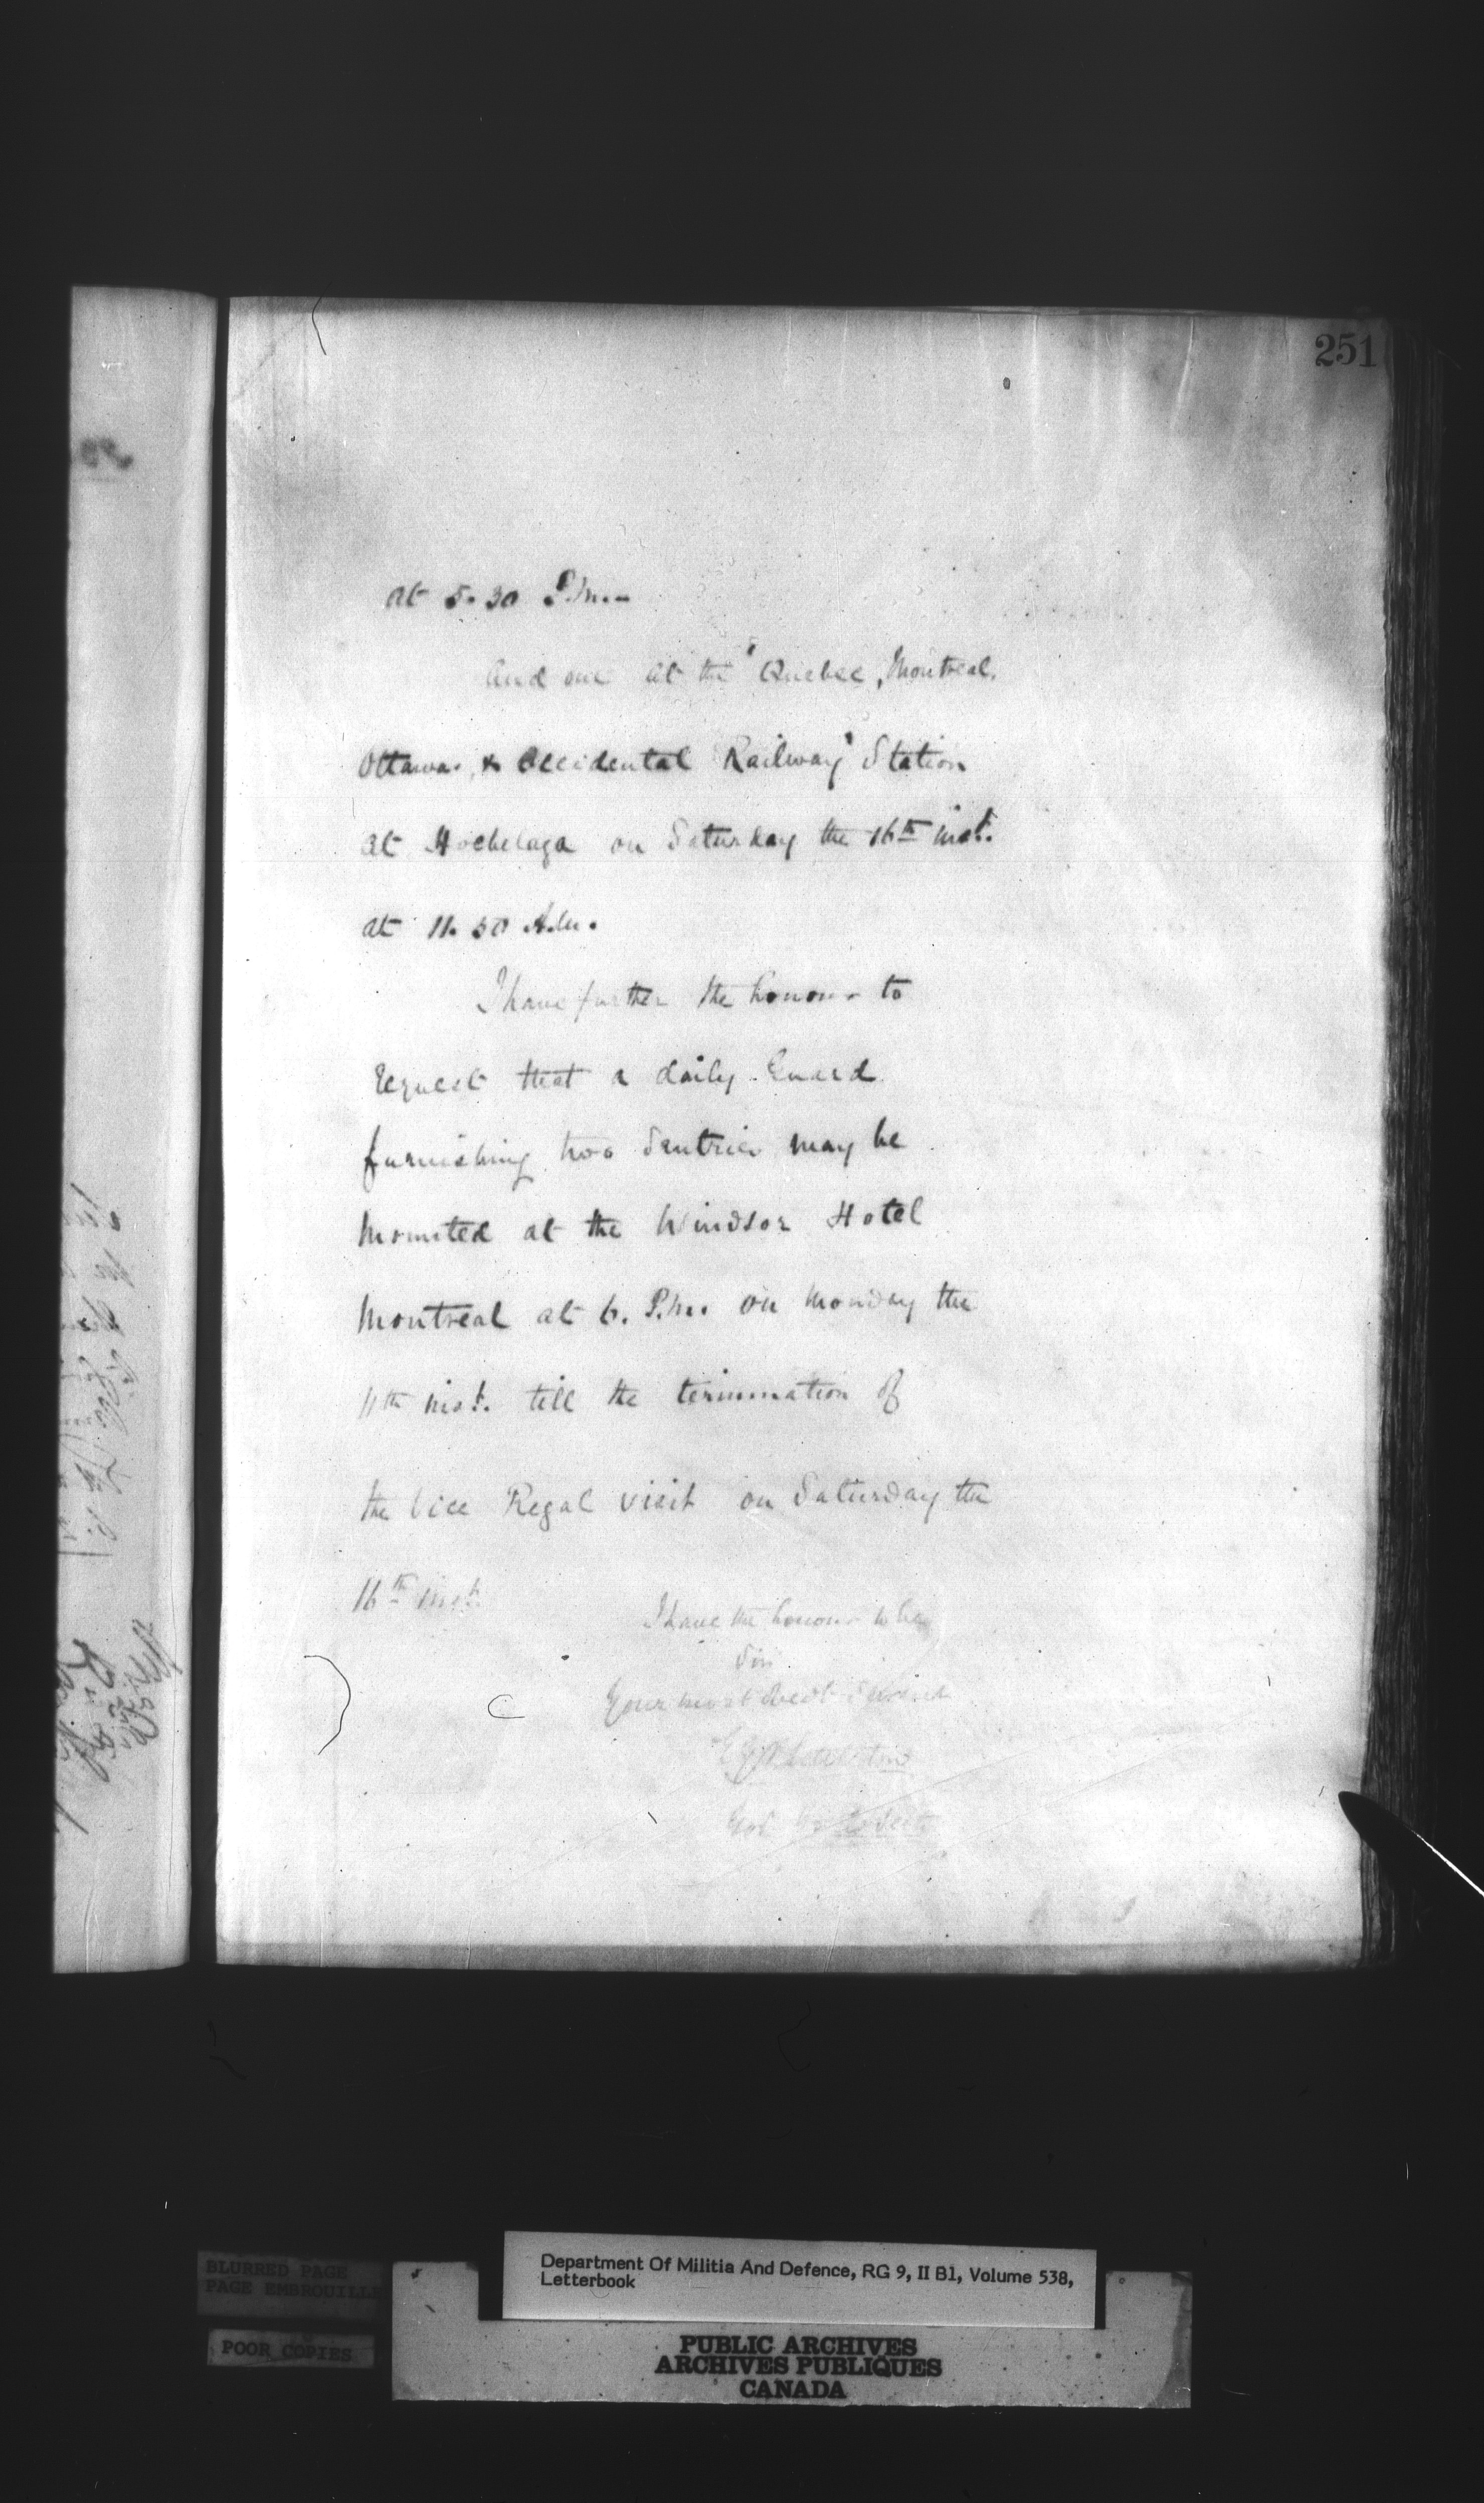 251
at 5.30 P.m.-
And one at the "Quebec, Montreal,
Ottawa, & Occidental Railway" Station
at Hochelaga on Saturday the 16th inst.
at 11.30 A.m.
I have further the honour to
request that a daily Guard
furnishing two Sentries may be
Mounted at the Windsor Hotel
Montreal at 6. P.m. on Monday the
11th inst. till the termination of
the Vice Regal visit on Saturday the
16th inst.
I have the honour to be
Sir
Your most obedt Servant
BLURRED PAGE
PAGE EMBROUILLE
POOR COPIES
Department Of Militia And Defence, RG 9, II B1, Volume 538,
Letterbook
PUBLIC ARCHIVES
ARCHIVES PUBLIQUES
CANADA